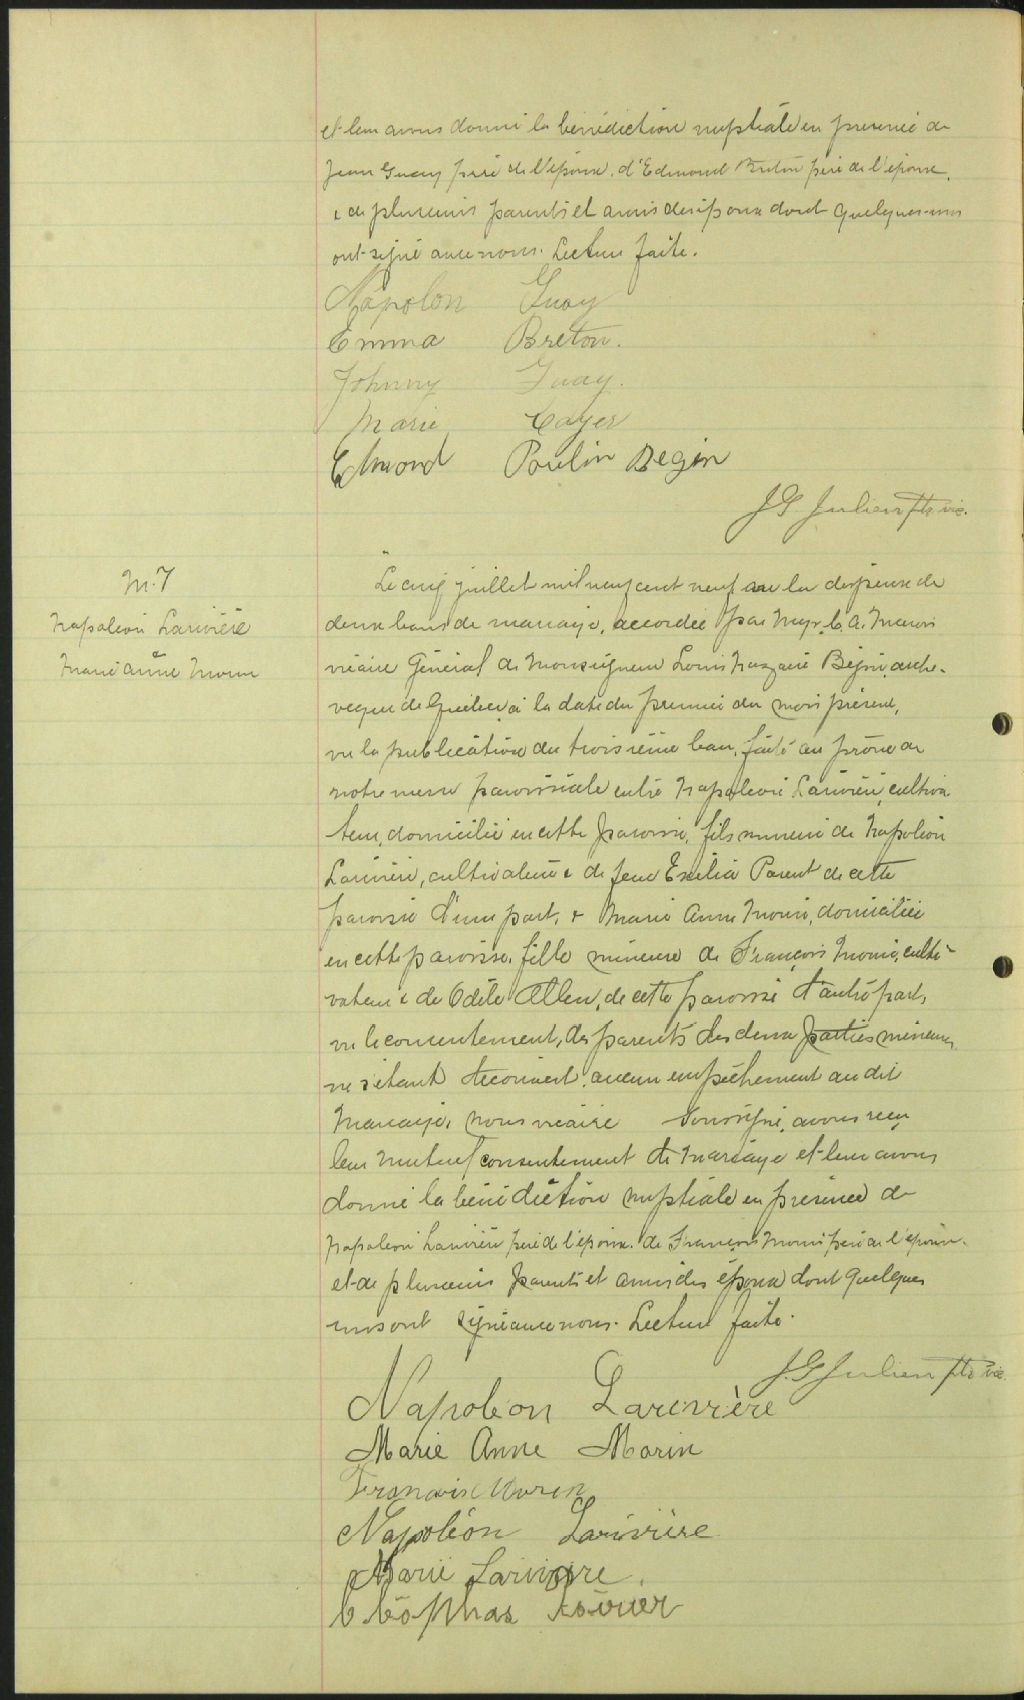 et leur avons donné la bénédiction nuptiale en présence de
Jean Guay père de l'époux, d'Edmond Breton père de l'épouse,
& de plusieurs parents et amis des époux dont quelques-uns
ont signé avec nous. Lecture faite.
Napoleon Guay
Emma Breton.
Johnny Guay.
Marie Cayer
Edmond Poulin Begin
J G Julien ptre vic.
M. 7
Napoléon Larivière
&
Marie Anne Morin
Le cinq juillet mil neuf cent neuf vu la dispense de
deux bans de mariage, accordée par Mgr. C. A. Marois
vicaire Général de Monseigneur Louis Nazaire Bégin, arche-
vêque de Québec, à la date du premier du mois présent,
vu la publication du troisième ban, faite au prône de
notre messe paroissiale entre Napoléon Larivière, cultiva
teur, domicilié en cette paroisse, fils mineur de Napoléon
Larivière, cultivateur & de feue Exilia Parent de cette
paroisse d'une part, & Marie Anne Morin, domiciliée
en cette paroisse, fille mineure de François Morin, culti-
vateur & de Odile Allen, de cette paroisse d'autre part,
vu le consentement, des parents des deux parties mineures
ne s'étant découvert, aucun empêchement au dit
mariage, nous vicaire soussigné, avons reçu
leur mutuel consentement de mariage et leur avons
donné la bénédiction nuptiale en présence de
Napoleon Larivière père de l'époux, de François Morin père de l'épouse
et de plusieurs parents et amis des époux dont quelques
uns ont signé avec nous. Lecture faite.
J. G Julien ptre vic.
Napoleon Larivière
Marie Anne Morin
Francois Moren
Napoléon Larivière
Marie Larivière
Cléophas